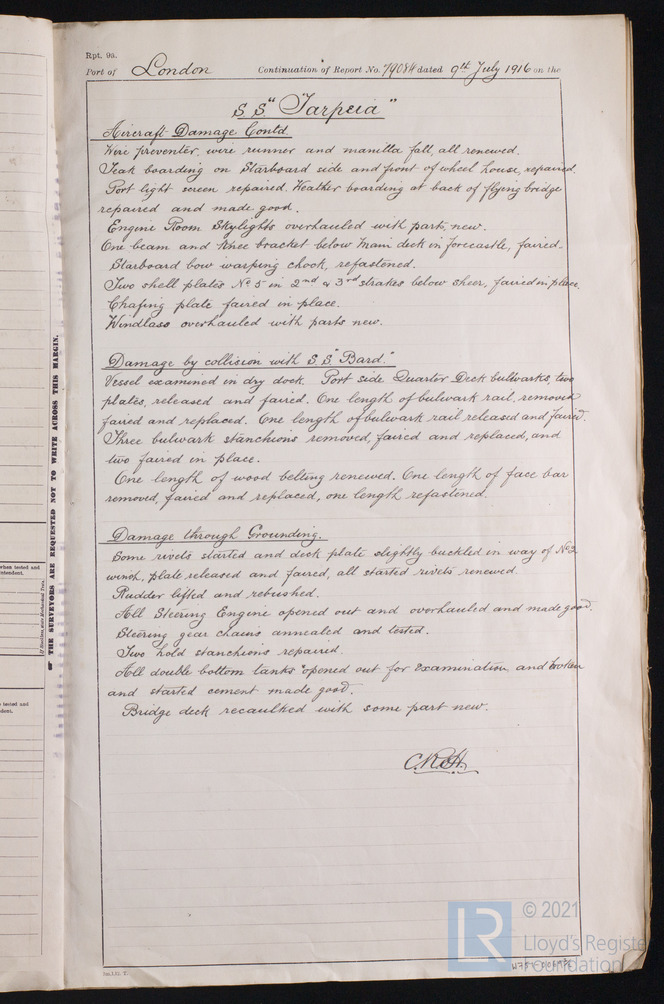 Rpt. 9a.
Port of London Continuation of Report No. 79084 dated 9th July 1916 on the
S.S. "Tarpeia"
Aircraft Damage Contd.
Wire preventer, wire runner and manilla fall, all renewed.
Teak boarding on Starboard side and front of wheel house, repaired.
Port light screen repaired. Weather boarding at back of flying bridge
repaired and made good.
Engine Room Skylights overhauled with parts, new.
One beam and knee bracket below main deck in forecastle, faired.
Starboard bow warping chock, refastened.
Two shell plates No 5 in 2nd & 3rd strakes below sheer, faired in place.
Chafing plate faired in place.
Windlass overhauled with parts new.
Damage by collision with S.S. "Bard."
Vessel examined in dry dock. Port side Quarter Deck bulwarks, two
plates, released and faired. One length of bulwark rail, removed
faired and replaced. One length of bulwark rail released and faired.
Three bulwark stanchions removed, faired and replaced, and
two faired in place.
One length of wood belting renewed. One length of face bar
removed, faired and replaced, one length refastened.
Damage through Grounding.
Some rivets started and deck plate slightly buckled in way of No 2
winch, plate released and faired, all started rivets renewed.
Rudder lifted and rebushed.
All Steering Engine opened out and overhauled and made good.
Steering gear chains annealed and tested.
Two hold stanchions repaired.
All double bottom tanks opened out for examination and broken
and started cement made good.
Bridge deck recaulked with some part new.
C.R.H.
THE SURVEYORS ARE REQUESTED NOT TO WRITE ACROSS THIS MARGIN.
when tested and
© 2021
LR
Lloyd's Registe
Foundation